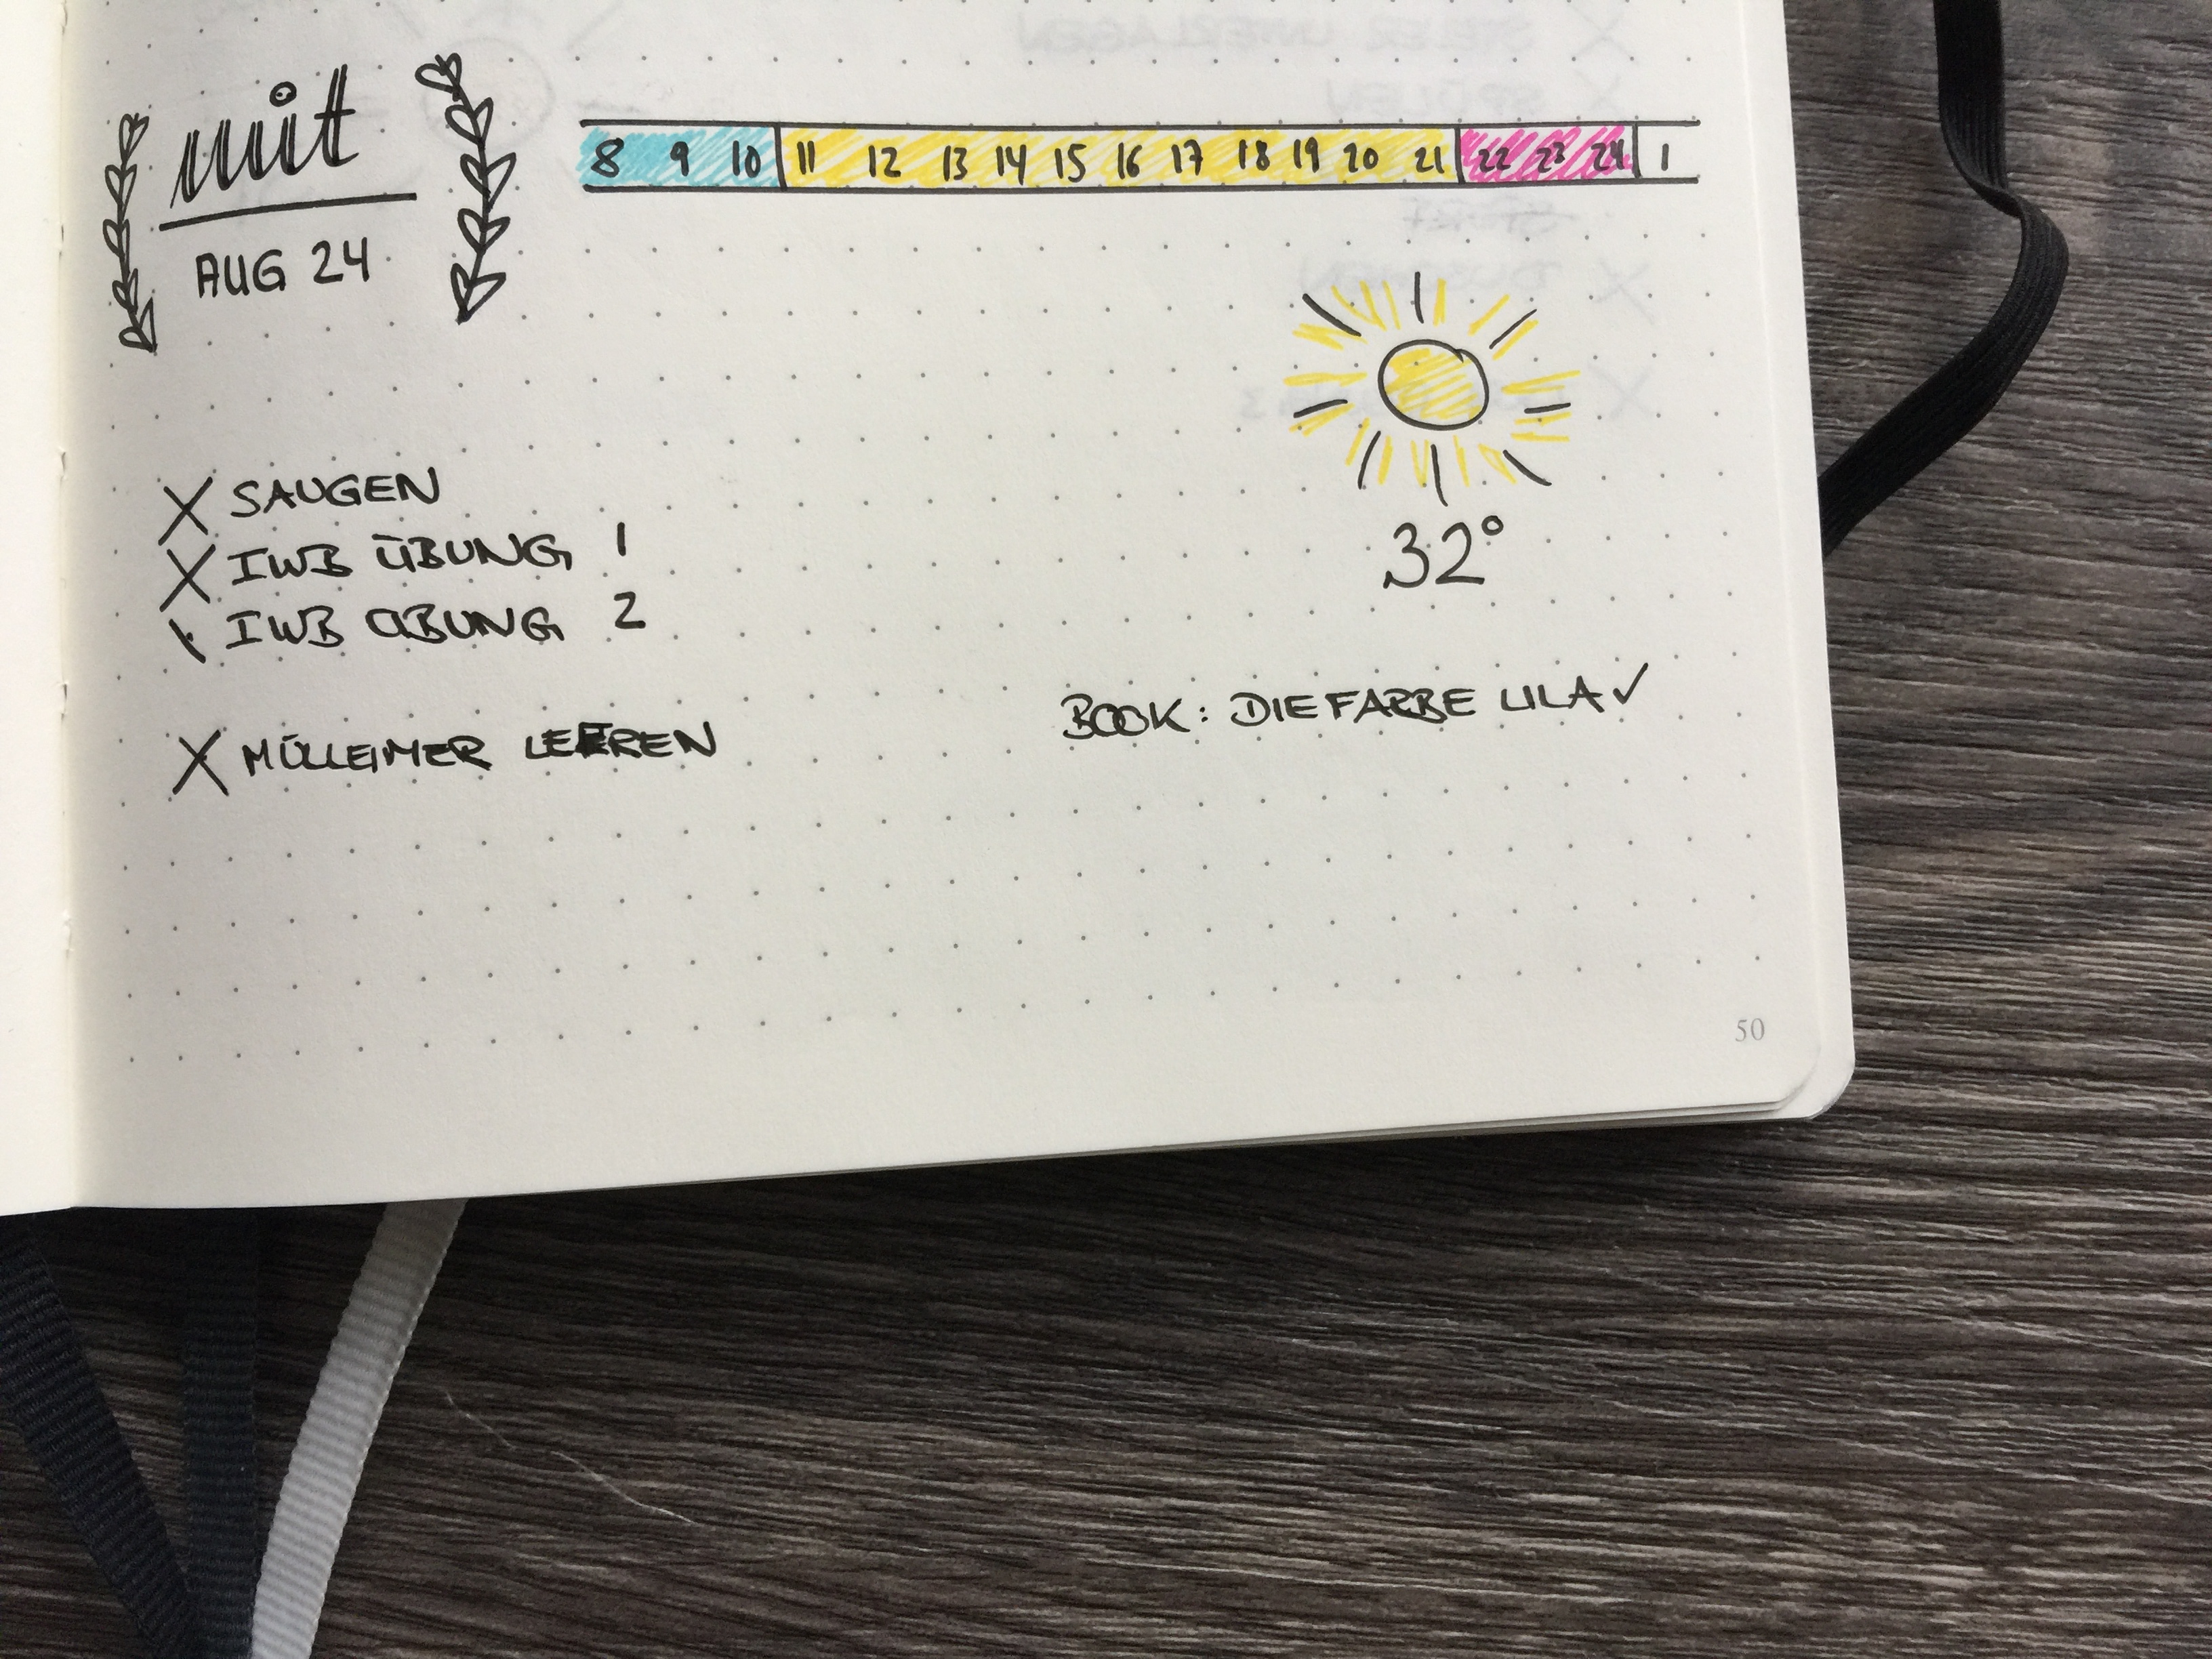 mit
AUG 24
8 9 10 11 12 13 14 15 16 17 18 19 20 21 22 23 24 1
32°
X SAUGEN
X IWB ÜBUNG 1
\ IWB ÜBUNG 2
X MÜLLEIMER LEEREN
BOOK: DIE FARBE LILA ✓
50
STEUER UNTERLAGEN
SPÜLEN
SPORT